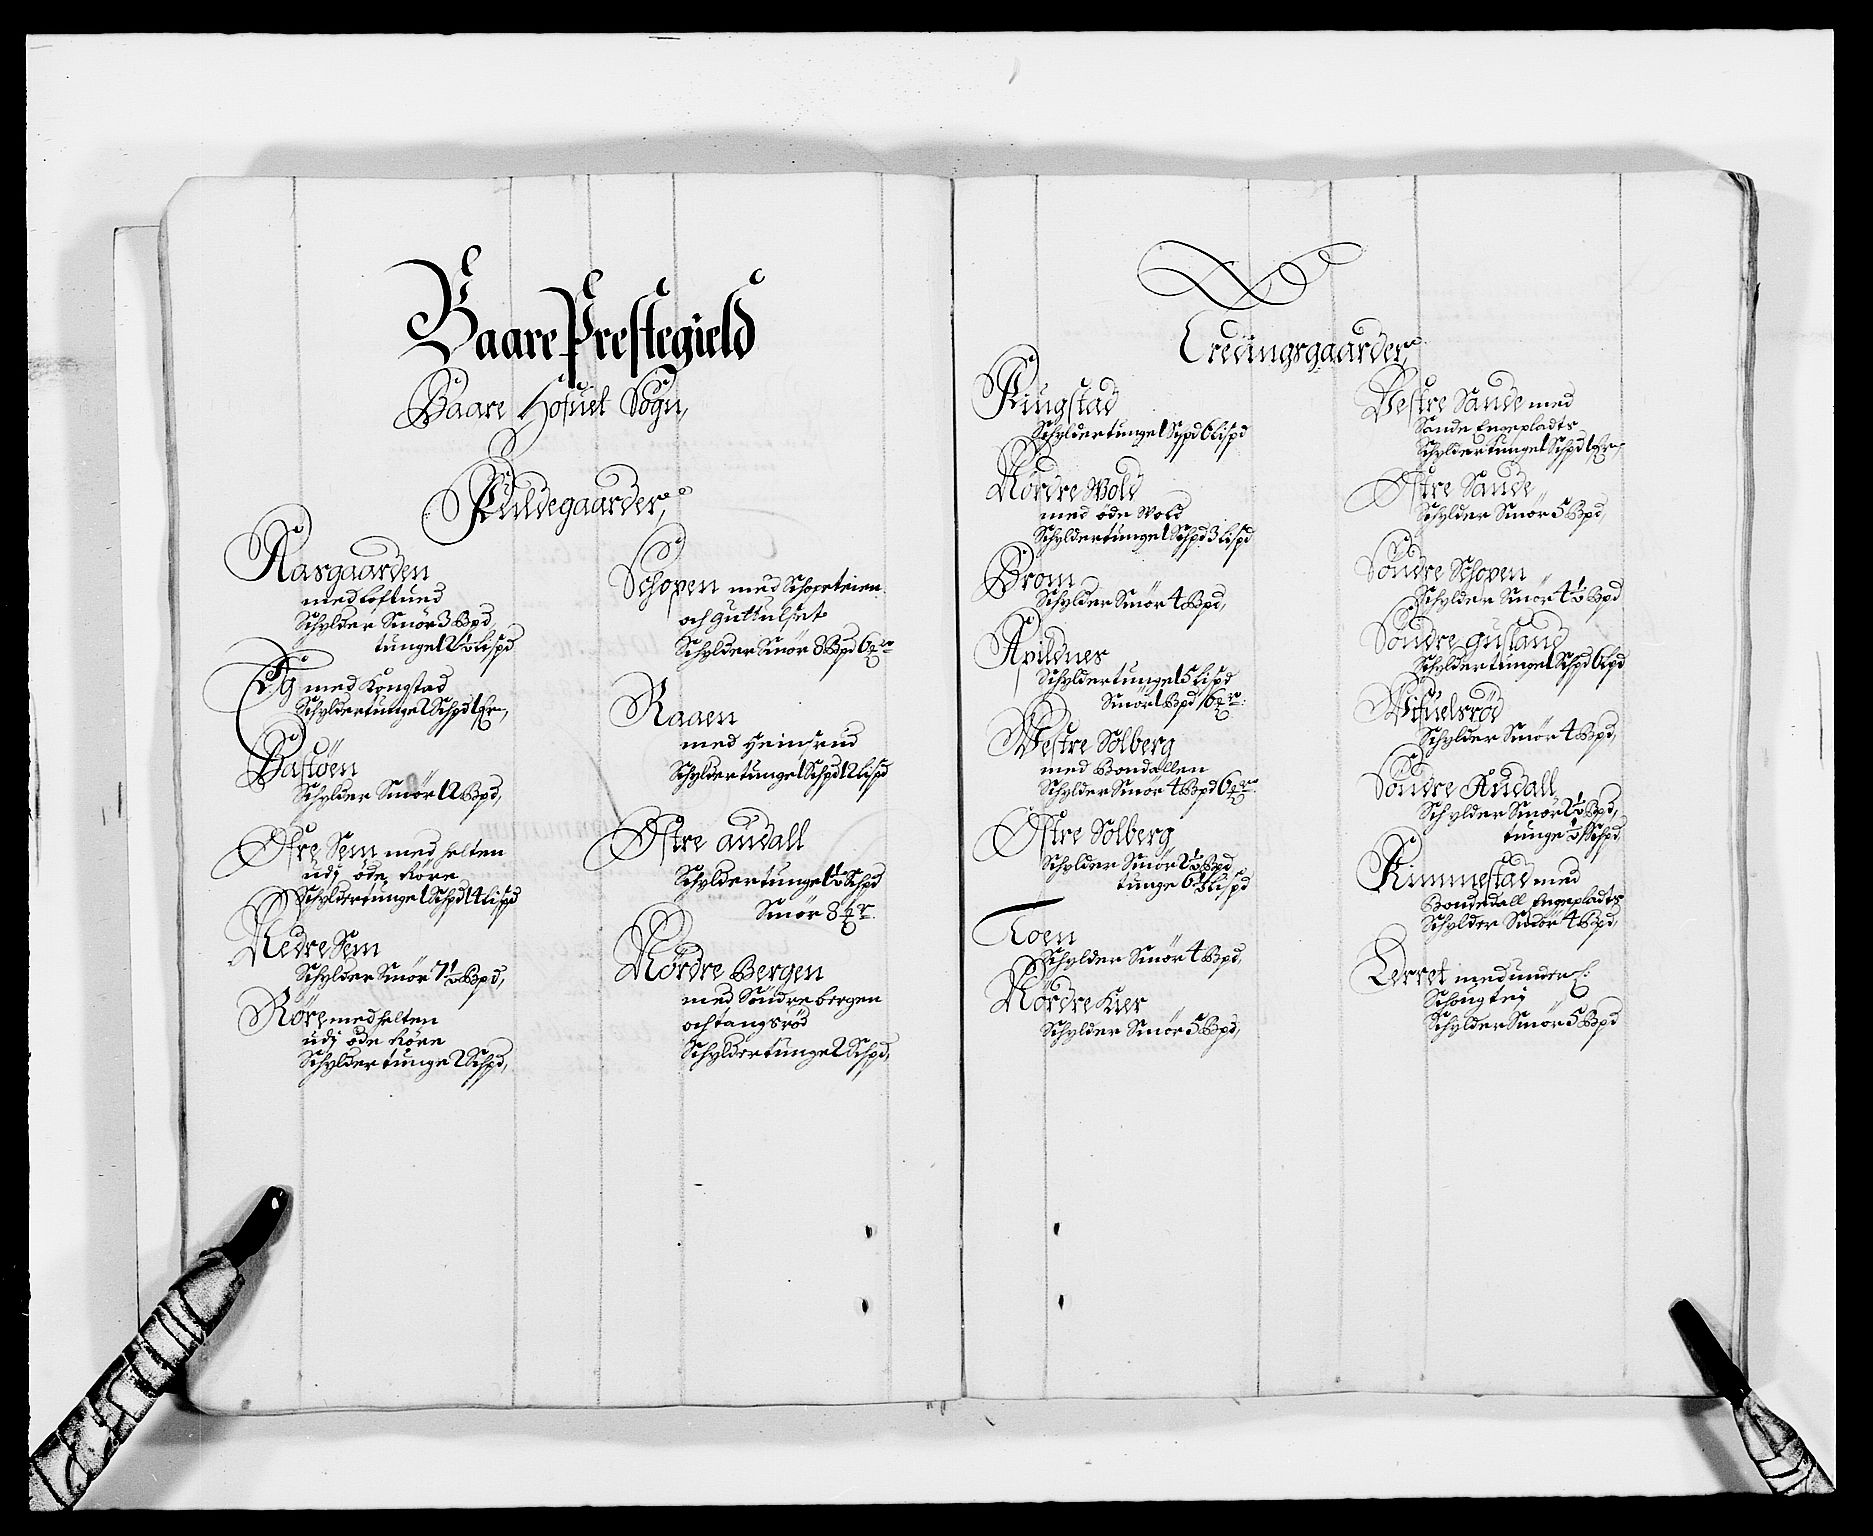 Baare Prestegield
Baare Hofuet Sogn,
Fuldegaarder,
Aasgaarden
med Loftued
Schylder Smör 3 Bpd,
tunge 12½ Lispd
Eg med Kongstad
Schylder tunge 2 Schpd 1 qr,
Bastöen
Schylder Smör 12 Bpd,
Öfre Sem med helten
udj öde Röre
Schylder tunge 1 Schpd 14 Lispd
Nedre Sem
Schylder Smör 7½ Bpd,
Röre med helten
udj öde Röre
Schylder tunge 2 Schpd,
Schoven med
och Guttulsröt
Schylder Smör 8 Bpd 6
Raaen
med Heinsrud
Schylder tunge 1 Schpd 12 Lispd
Östre Audall
Schylder tunge 1½ Schpd
Smör 8
Nördre Bergen
med Söndre bergen
och tangsröd
Schylder tunge 2 Schpd,
Ödegaarder,
Ringstad
Schylder tunge 1 Schpd 6 Lispd
Nordre Wold
med öde Wold
Schylder tunge 1 Schpd 3 Lispd
Brom
Schylder Smör 4 Bpd,
Apildnes
Schylder tunge 15 Lispd
Smör 1 Bpd 16
Westre Solberg
med Bondallen
Schylder Smör 4 Bpd 6
Östre Solberg
Schylder Smör 2½ Bpd
tunge 6½ Lispd
Toen
Schylder Smör 4 Bpd,
Nördre Kier
Schylder Smör 5 Bpd,
Westre Sande med
Sande Engepladts
Schylder tunge 1 Schpd 1 qr,
Östre Sande
Schylder Smör 5 Bpd,
Söndre Schoven
Schylder Smör 4½ Bpd
Söndre Gusland
Schylder tunge 1 Schpd 6 Lpd
Wifuelsröd
Schylder Smör 4 Bpd,
Söndre Audall
Schylder Smör 2½ Bpd,
tunge ½ Schpd
Rimmestad med
Bondedall Engepladts
Schylder Smör 4 Bpd,
Lerret med under
Schougtej
Schylder Smör 5 Bpd